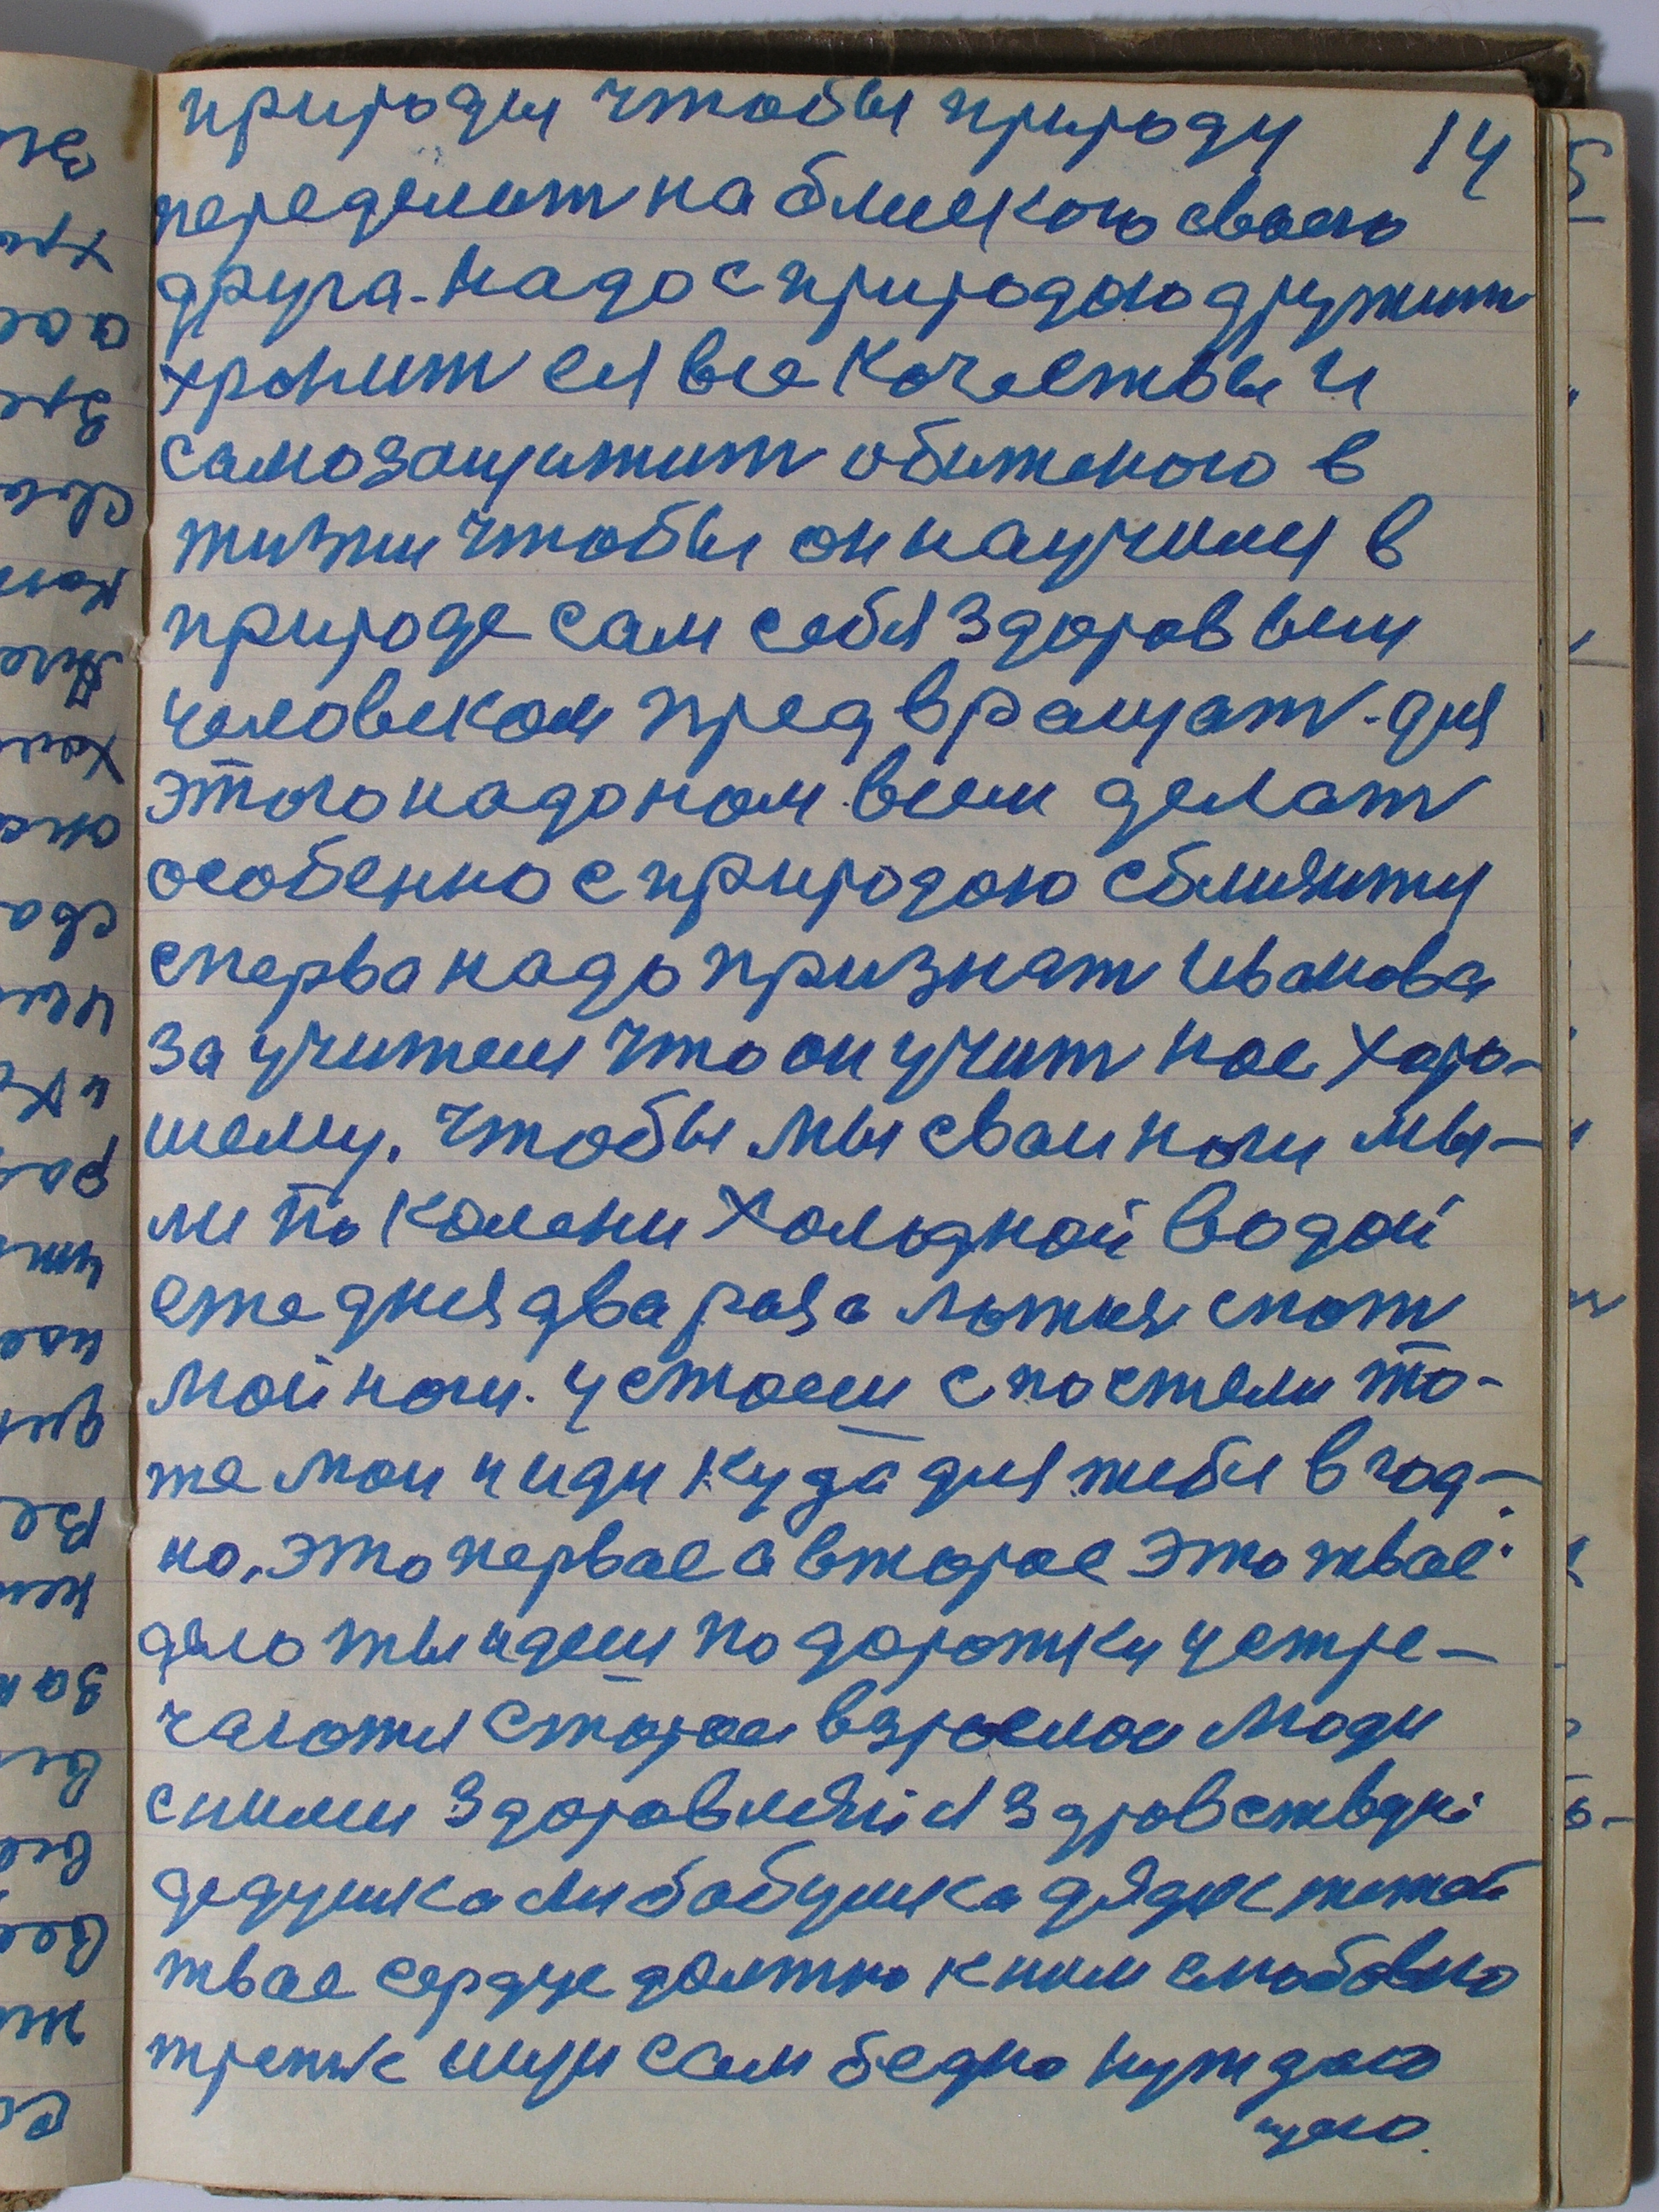 природы чтобы природу 14
переделат на блиского своего
друга. Надо с природою дружит
хронит ея все качествы и
самозащитит обиженого в
жизни чтобы он научился в
природе сам себя здоровым
человеком предвращат. для
этого надо нам всем делат
особенно с природою сблизитя
сперва надо признат Иванова
за учителя что он учит нас хоро-
шему. Чтобы мы сваи ноги мы-
ли по колени холодной водой
еже дня два раза ложися спат
мой ноги. устаеш с постели то-
же мои и иди куда для тебя вгод-
но, это первае а второе это твае
дело ты идеш по дорожки устре-
чаютя старое взрослое люди
сними здоровляйся здровствуй
дедушка ли бабушка дядя с тетей
твае сердце должно к ним слюбовю
третье ищи сам бедно нуждаю
щею